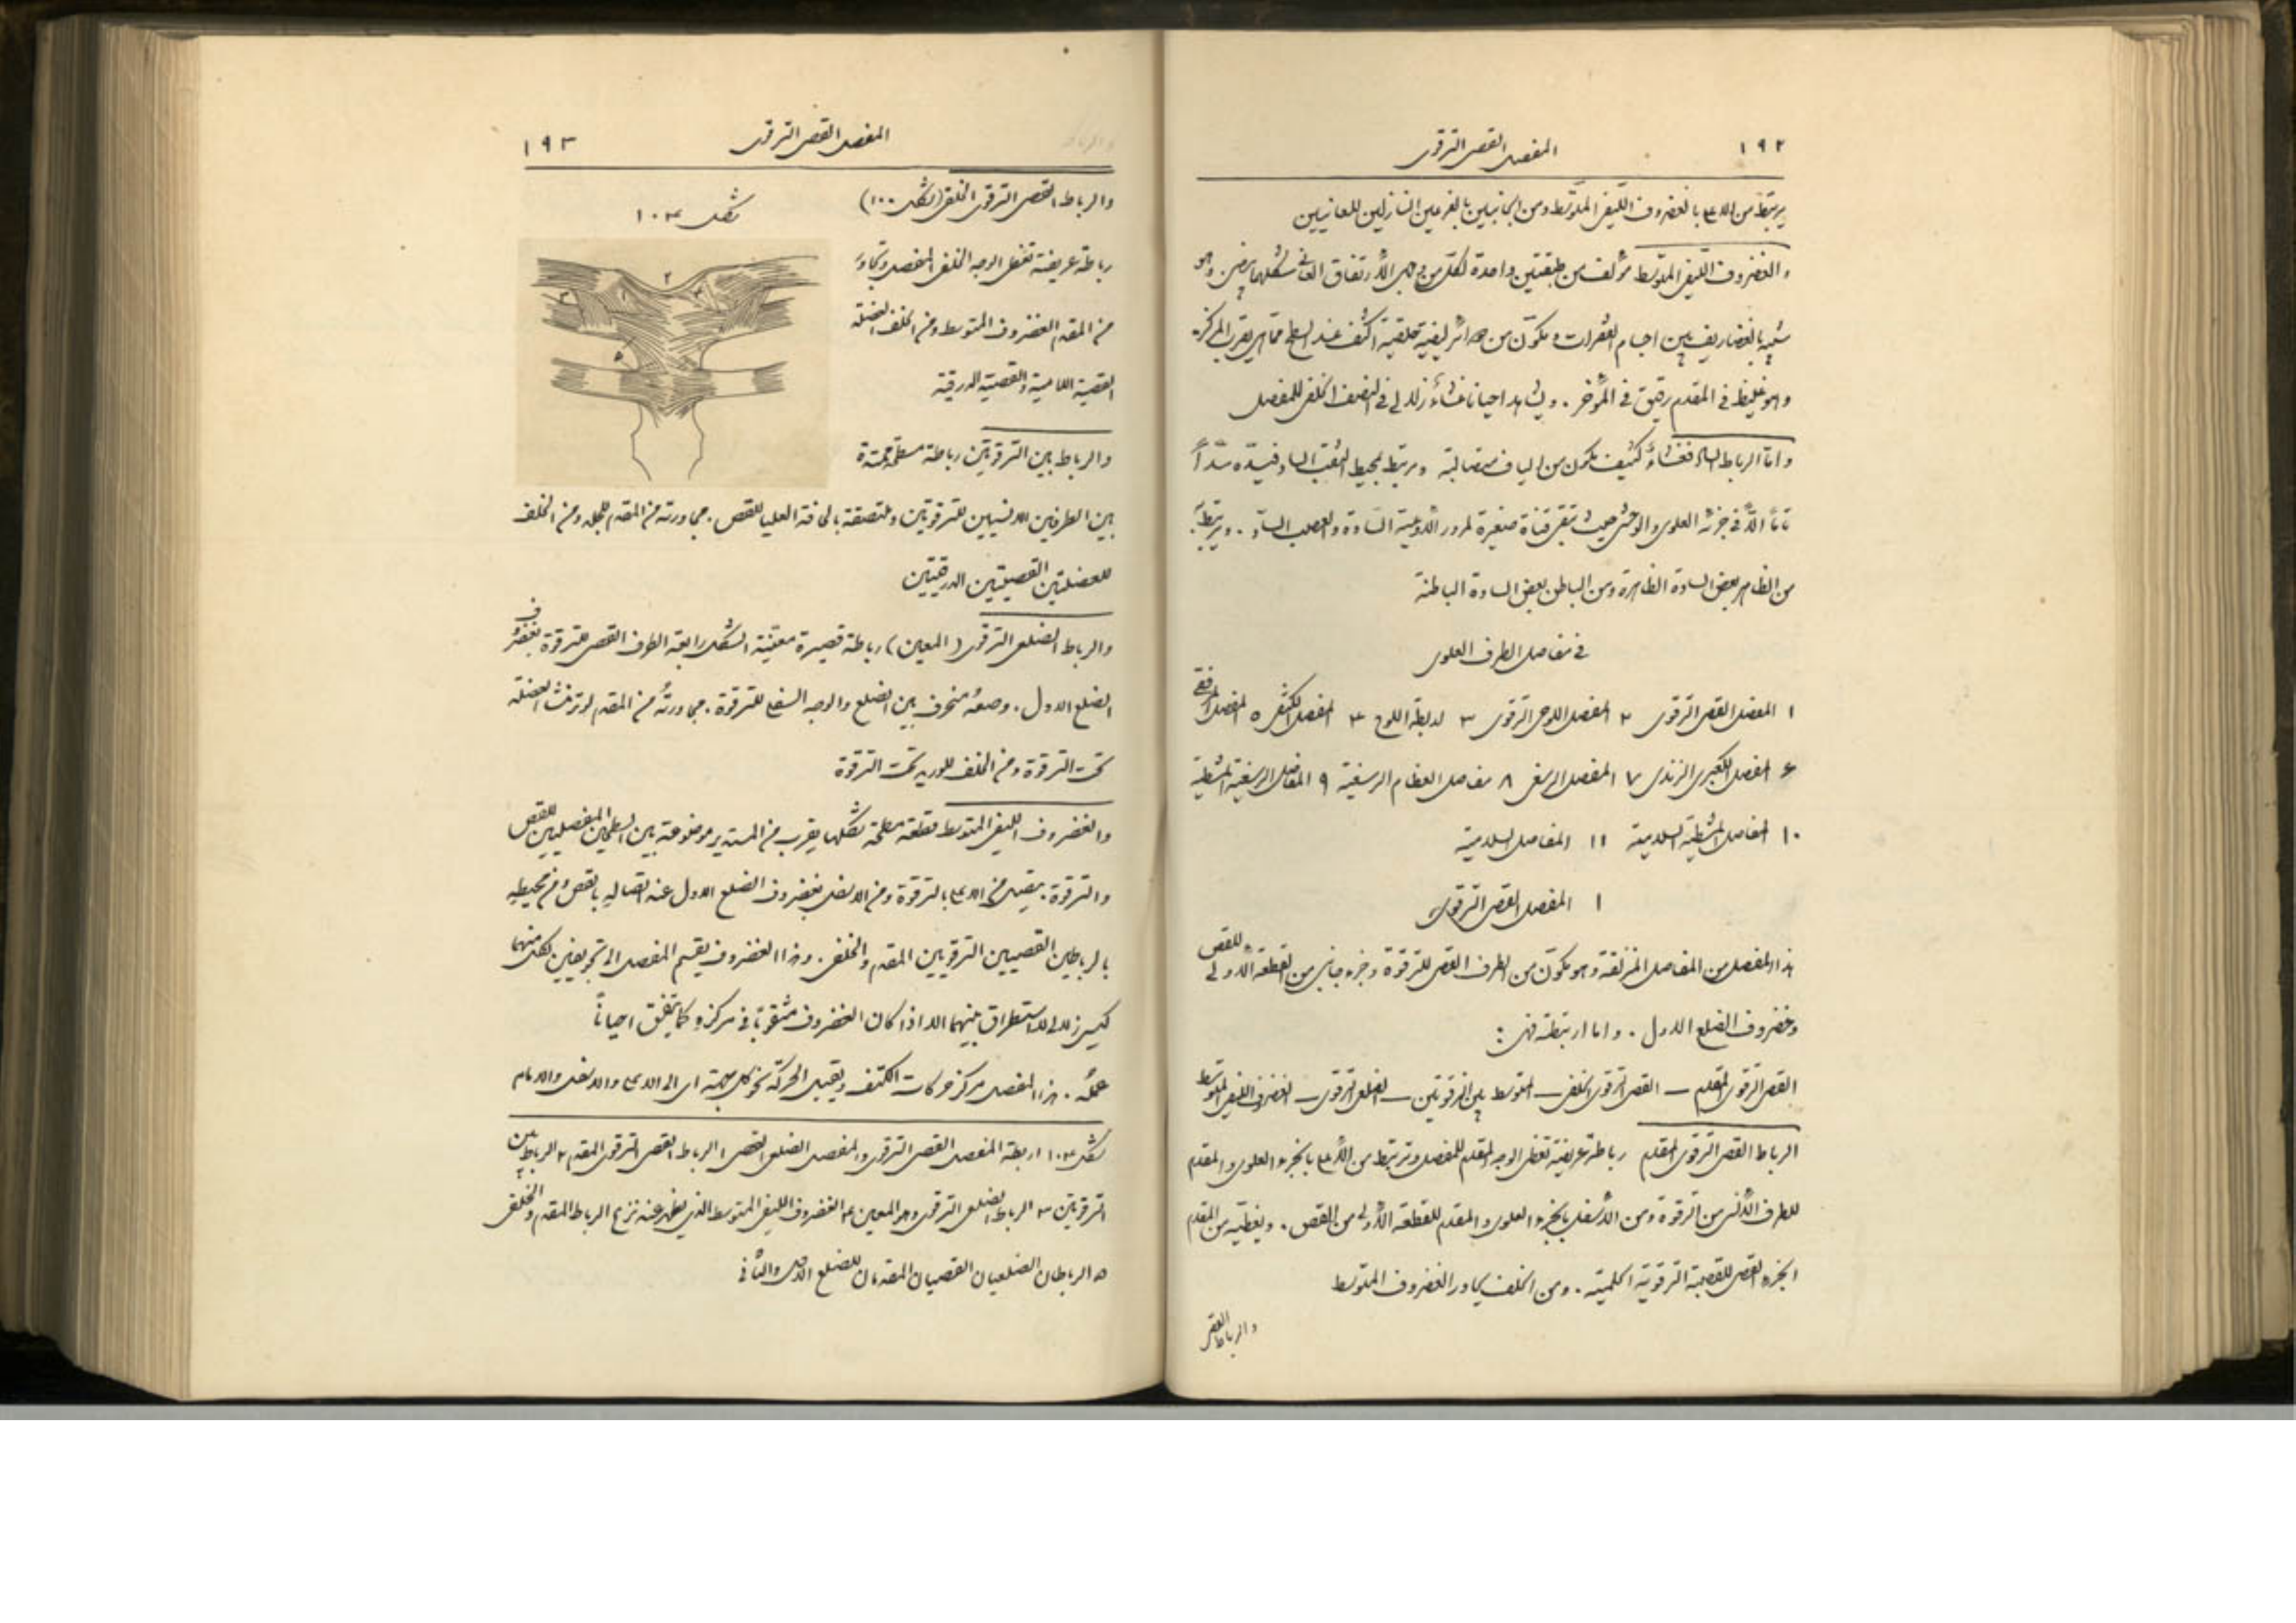 ١٩٢
المفصل القصى الترقوى
يرتبط من الاعلى بالغضروف الليفى المتوسط ومن الجانبين بالفرعين النازلين للعانيين
والغضروف الليفى المتوسط مؤلف من طبقتين واحدة لكل من وجهى الارتفاق العانى شكلهما بيضى وهو
شبيه بالغضاريف بين اجسام الفقرات ومكوّن من دوائر ليفية حلقية اكثف عند السطح مما هى بقرب المركز
وهو غليظ فى المقدم رقيق فى المؤخر . ويشاهد احيانا غشاء زلالى فى النصف الخلفى للمفصل
واما الرباط الساد فغشاء كثيف مكون من الياف متصالبة ومرتبط بمحيط الثقب الساد فيسده سدًا
تامًا الا فى جزئه العلوى والوحشى حيث تبقى قناة صغيرة لمرور الاوعية السادة والعصب الساد . ويرتبط به
من الظاهر بعض السادة الظاهرة ومن الباطن بعض السادة الباطنة
فى مفاصل الطرف العلوى
١ المفصل القصى الترقوى ٢ المفصل اللوحى الترقوى ٣ اربطة اللوح ٤ المفصل الكتفى ٥ المفصل المرفقى
٦ المفصل الكعبرى الزندى ٧ المفصل الرسغى ٨ مفاصل العظام الرسغية ٩ المفاصل الرسغية المشطية
١٠ المفاصل المشطية السلامية ١١ المفاصل السلامية
١ المفصل القصى الترقوى
هذا المفصل من المفاصل المنزلقة وهو مكوّن من الطرف القصى للترقوة وجزء جانبى من القطعة الاولى للقص
وغضروف الضلع الاول . واما اربطته فهى :
القصى الترقوى المقدم — القصى الترقوى الخلفى — المتوسط بين الترقوتين — الضلعى الترقوى — الغضروف الليفى المتوسط
الرباط القصى الترقوى المقدم رباطة عريضة تغطى الوجه المقدم للمفصل وترتبط من الاعلى بالجزء العلوى والمقدم
للطرف الانسى من الترقوة ومن الاسفل بالجزء العلوى والمقدم للقطعة الاولى من القص . ويغطيه من المقدم
الجزء القصى للقصية الترقوية الحلمية . ومن الخلف يجاور الغضروف المتوسط
والرباط القصى
المفصل القصى الترقوى
١٩٣
والرباط القصى الترقوى الخلفى (شكل ١٠٠)
شكل ١٠٤
رباطة عريضة تغطى الوجه الخلفى للمفصل وتجاور
من المقدم الغضروف المتوسط ومن الخلف العضلة
القصية اللامية والقصية الدرقية
والرباط بين الترقوتين رباطة مسطحة ممتدة
بين الطرفين الانسيين للترقوتين وملتصقة بالحافة العليا للقص . مجاورته من المقدم للجلد ومن الخلف
للعضلتين القصيتين الدرقيتين
والرباط الضلعى الترقوى (المعين) رباطة قصيرة معيّنية الشكل رابطة الطرف القصى للترقوة بغضروف
الضلع الاول . وضعه منحرف بين الضلع والوجه السفلى للترقوة . مجاورته من المقدم لوتر منشأ العضلة
تحت الترقوة ومن الخلف للوريد تحت الترقوة
والغضروف الليفى المتوسط قطعة مسطحة شكلها يقرب من المستدير موضوعة بين السطحين المفصليين للقص
والترقوة . يتصل من الاعلى بالترقوة ومن الاسفل بغضروف الضلع الاول عند اتصاله بالقص ومن محيطه
بالرباطين القصيين الترقويين المقدم والخلفى . وهذا الغضروف يقسم المفصل الى تجويفين لكل منهما
كيس زلالى لا استطراق بينهما الا اذا كان الغضروف مثقوبًا فى مركزه كما يتفق احيانًا
عمله . هذا المفصل مركز حركات الكتف ويقبل الحركة نحو كل جهة اى الى الاعلى والاسفل والامام
شكل ١٠٤ اربطة المفصل القصى الترقوى والمفصل الضلعى القصى ١ الرباط القصى الترقوى المقدم ٢ الرباط بين
الترقوتين ٣ الرباط الضلعى الترقوى وهو المعين ٤ الغضروف الليفى المتوسط الذى يظهر عند نزع الرباط المقدم والخلفى
٥ الرباطان الضلعيان القصيان المقدمان للضلع الاول والثانى